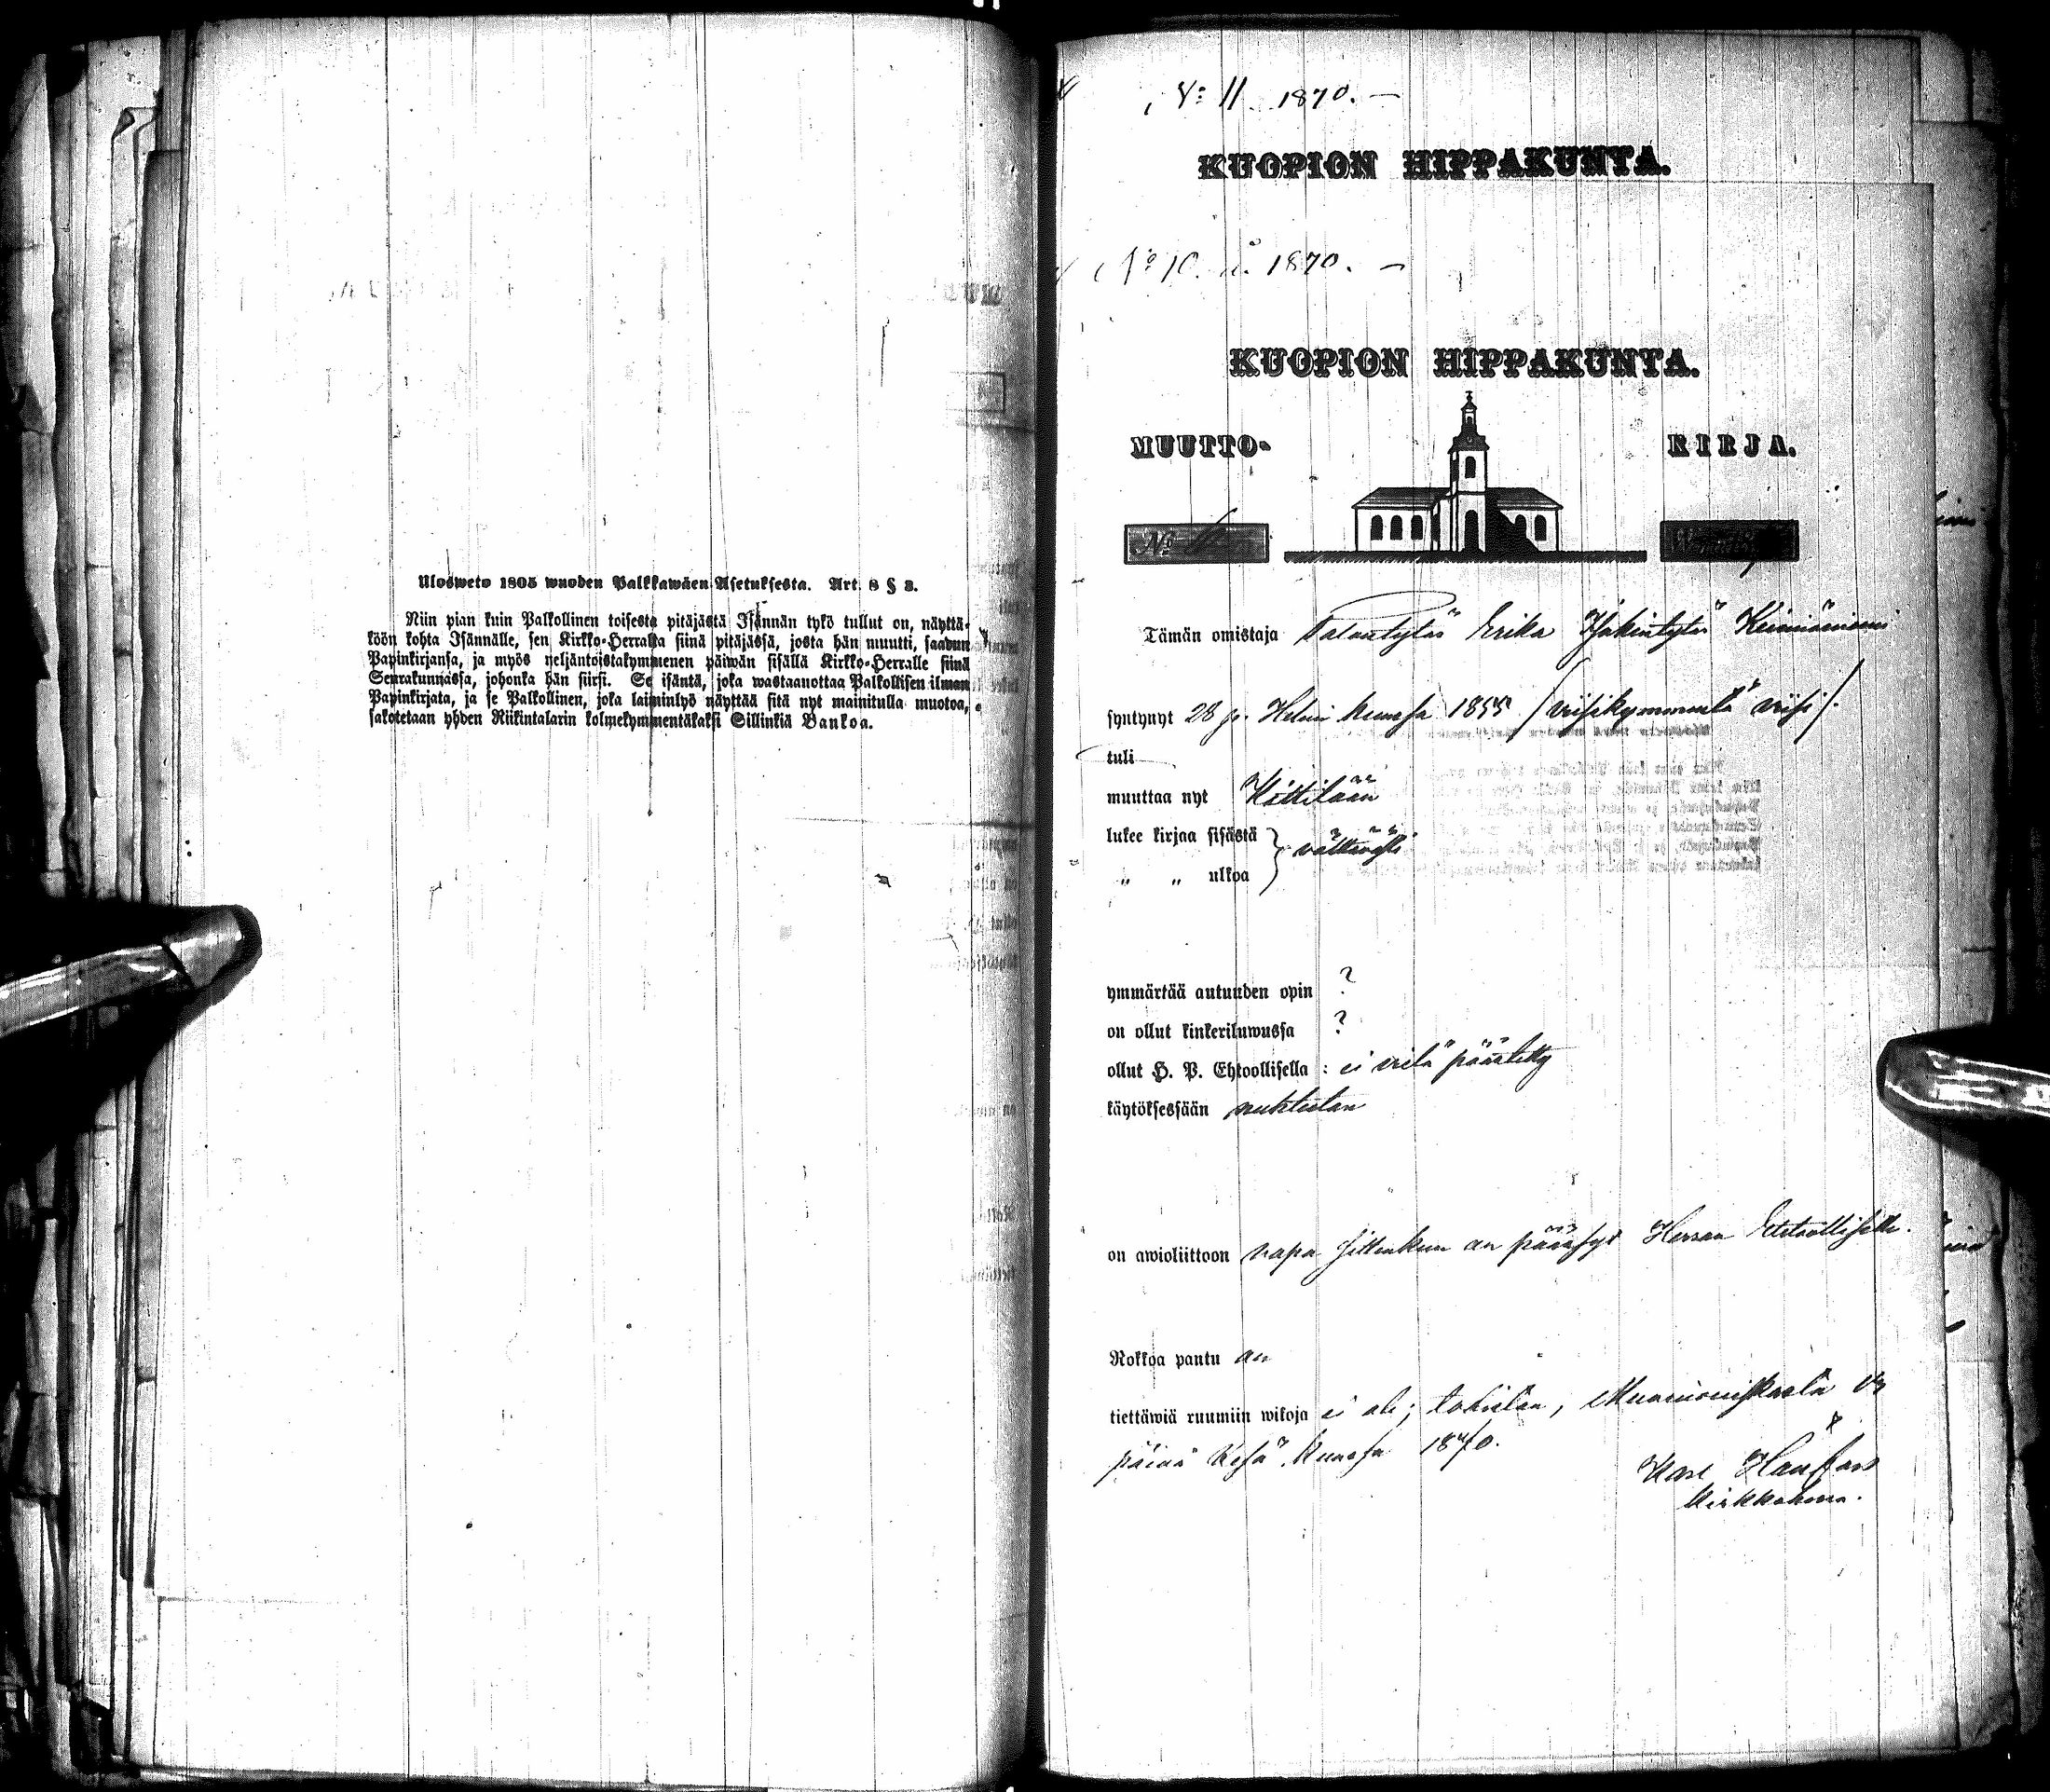 Ulosweto 1805 wuoden Palkkawäen Asetuksesta. Art. 8 § 3.
Niin pian kuin Palkollinen toisesta pitäjästä Isännän tykö tullut on, näyttä-
köön kohta Isännälle, sen Kirkko-Herralta siinä pitäjässä, josta hän muutti, saadun
Papinkirjansa, ja myös neljäntoistakymmenen päiwän sisällä Kirkko-Herralle siinä
Seurakunnassa, johonka hän siirsi. Se isäntä, joka wastaanottaa Palkollisen ilman
Papinkirjata, ja se Palkollinen, joka laiminlyö näyttää sitä nyt mainitulla muotoa,
sakotetaan yhden Riikintalarin kolmekymmentäkaksi Sillinkiä Bankoa.
No 11 1870. —
KUOPION HIPPAKUNTA.
No 10. å. 1870. —
KUOPION HIPPAKUNTA.
MUUTTO- KIRJA.
No
Tämän omistaja Talontytär Erika Isakintytär
syntynyt 28 p. Helmi kuussa 1855 /viisikymmentä viisi/.
tuli
muuttaa nyt Kittilään
lukee kirjaa sisästä } välttävästi
" " ulkoa
ymmärtää autuuden opin ?
on ollut kinkeriluwussa ?
ollut H. P. Ehtoollisella : ei vielä päästetty
käytöksessään nuhteeton
on awioliittoon vapa sittenkun on päässyt Herran Ehtoolliselle.
Rokkoa pantu on
tiettäwiä ruumiin wikoja ei ole; todistan, Muonionniskasta
päivä Kesä kuussa 1870.
Karl
Kirkkoherra.